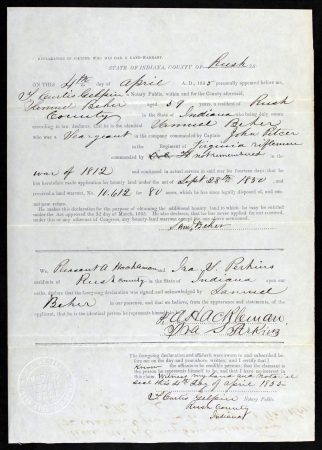 DECLARATION OF SOLDIER WHO HAS HAD A LAND-WARRANT.
STATE OF INDIANA, COUNTY OF Rush SS.
ON THIS 4th day of April A. D., 1855 personally appeared before me
F. Curtis Gilpin Notary Public, within and for the County aforesaid,
Samuel Baker aged 59 years, a resident of Rush
County in the State of Indiana who being duly sworn
according to law, declares, that he is the identical Samuel Baker
who was a Sergeant in the company commanded by Captain John
in the Regiment of Virginia riflemen
not remembered in the
war of 1812 and continued in actual service in said war for fourteen days: that he
has heretofore made application for bounty land under the act of Sept 28th 1850 and
received a land warrant, No. 10.612 — 80 acres, which he has legally disposed of, and can-
not now return.
He makes this declaration for the purpose of obtaining the additional bounty land to which he may be entitled
under the Act approved the 3d day of March, 1855. He also declares, that he has never applied for nor received,
under this or any other Act of Congress, any bounty-land warrant except the one above mentioned.
Saml Baker
We Pleasant A Hackleman Ira S. Perkins
residents of Rush County in the State of Indiana upon our
oaths, declare that the foregoing declaration was signed and acknowledged by Samuel
Baker in our presence, and that we believe, from the appearance and statements, of the
applicant, that he is the identical person he represents himself to be.
P. A. HACKLEMAN.
Ira S Perkins
The foregoing declaration and affidavit were sworn to and subscribed
before me on the day and year above written; and I certify that I
Know the affiants to be credible persons; that the claimant is
the person he represents himself to be, and that I have no interest in
this claim. Witness my hand and Notarial
seal this 4th day of April 1855
F Curtis Gilpin Notary Public.
Rush County
Indiana